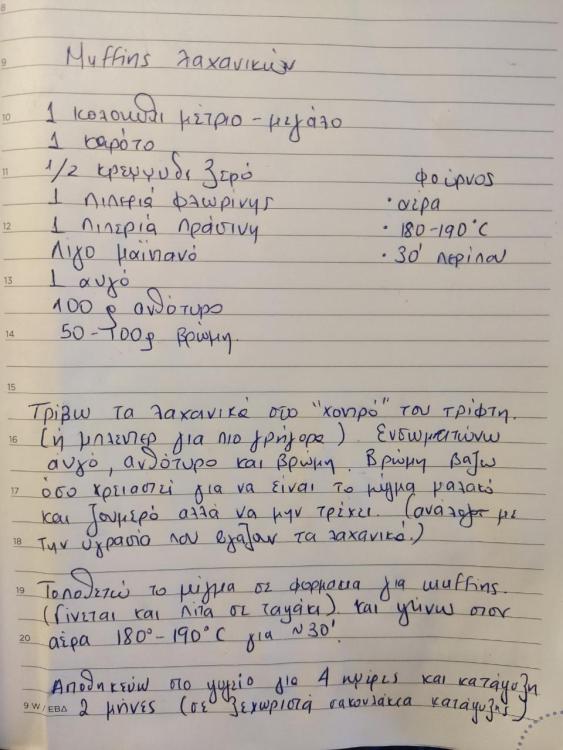 8
9
Muffins λαχανικών
10
1 κολοκύθι μέτριο - μεγάλο
1 καρότο
11
1/2 κρεμμύδι ξερό
1 πιπεριά φλωρίνης
12
1 πιπεριά πράσινη
Λίγο μαϊντανό
13
1 αυγό
100 g ανθότυρο
14
50 - 100g βρώμη.
Φούρνος
• αέρα
• 180-190°C
• 30' περίπου
15
Τρίβω τα λαχανικά στο "χοντρό" του τρίφτη.
16
(ή μπλέντερ για πιο γρήγορα) Ενσωματώνω
αυγό, ανθότυρο και βρώμη. Βρώμη βάζω
17
όσο χρειαστεί για να είναι το μίγμα μαλακό
και ζουμερό αλλά να μην τρέχει. (ανάλογα με
18
την υγρασία που έβγαλαν τα λαχανικά.)
19
Τοποθετώ το μίγμα σε φορμάκια για muffins.
(Γίνεται και πίτα σε ταψάκι) και ψήνω στον
20
αέρα 180° - 190°C για ~30'.
Αποθηκεύω στο ψυγείο για 4 ημέρες και κατάψυξη
9 W / ΕΒΔ
2 μήνες (σε ξεχωριστά σακουλάκια κατάψυξης)